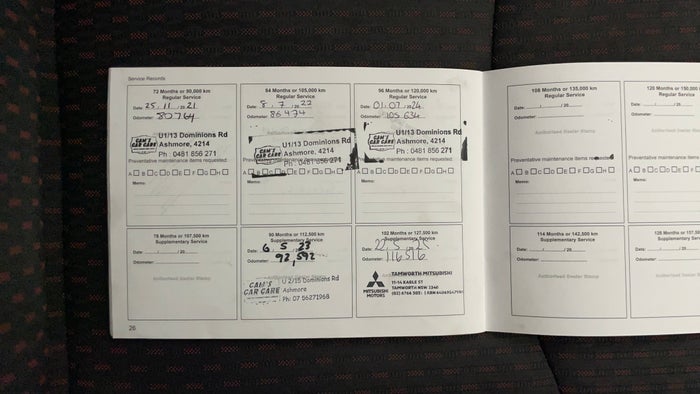 Service Records
72 Months or 90,000 km
Regular Service
Date: 25 . 11 . 2021
Odometer: 80764
U1/13 Dominions Rd
CAM'S CAR CARE Ashmore, 4214
Ph : 0481 856 271
Preventative maintenance items requested:
A B C D E F G H
Memo:
84 Months or 105,000 km
Regular Service
Date: 8 . 7 . 2022
Odometer: 86474
U1/13 Dominions Rd
CAM'S CAR CARE Ashmore, 4214
Ph : 0481 856 271
A B C D E F G H
Memo:
96 Months or 120,000 km
Regular Service
Date: 01.07.2024
Odometer: 105 634
U1/13 Dominions Rd
CAM'S CAR CARE Ashmore, 4214
Ph : 0481 856 271
Preventative maintenance items requested:
A B C D E F G H
Memo:
78 Months or 97,500 km
Supplementary Service
Date: / / 20
Odometer:
Authorised Dealer Stamp
90 Months or 112,500 km
Supplementary Service
Date: 6 . 5 . 23
Odometer: 92,592
Authorised Dealer Stamp
CAM'S CAR CARE
U 2/15 Dominions Rd
Ashmore
Ph: 07 55271968
102 Months or 127,500 km
Supplementary Service
Date:
Odometer: 116516
TAMWORTH MITSUBISHI
11-14 EARLE ST
TAMWORTH NSW 2340
MITSUBISHI
MOTORS
26
108 Months or 135,000 km
Regular Service
Date: / / 20
Odometer:
Authorised Dealer Stamp
Preventative maintenance items requested:
A B C D E F G H
Memo:
114 Months or 142,500 km
Supplementary Service
Date: / / 20
Odometer:
Authorised Dealer Stamp
120 Months or 150,00
Regular Servi
Date: /
Odometer:
Authorised
Preventative maintenance
A B C D
Memo:
Supplementary
Date: /
Odometer:
Authorised